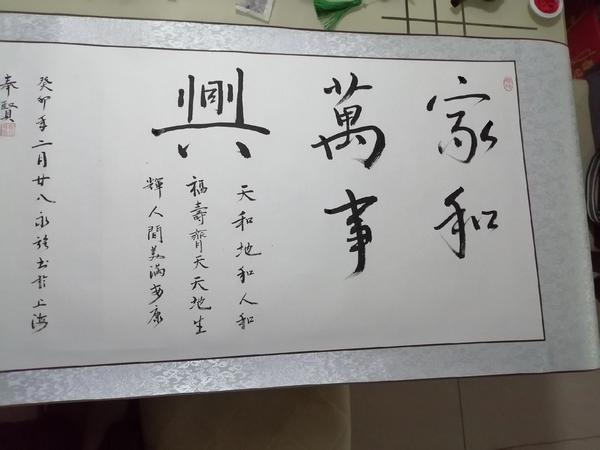 家和
萬事
興
天和地和人和
福壽齊天天地生
輝人間美滿安康
癸卯年二月廿八永书於上海
奉賢